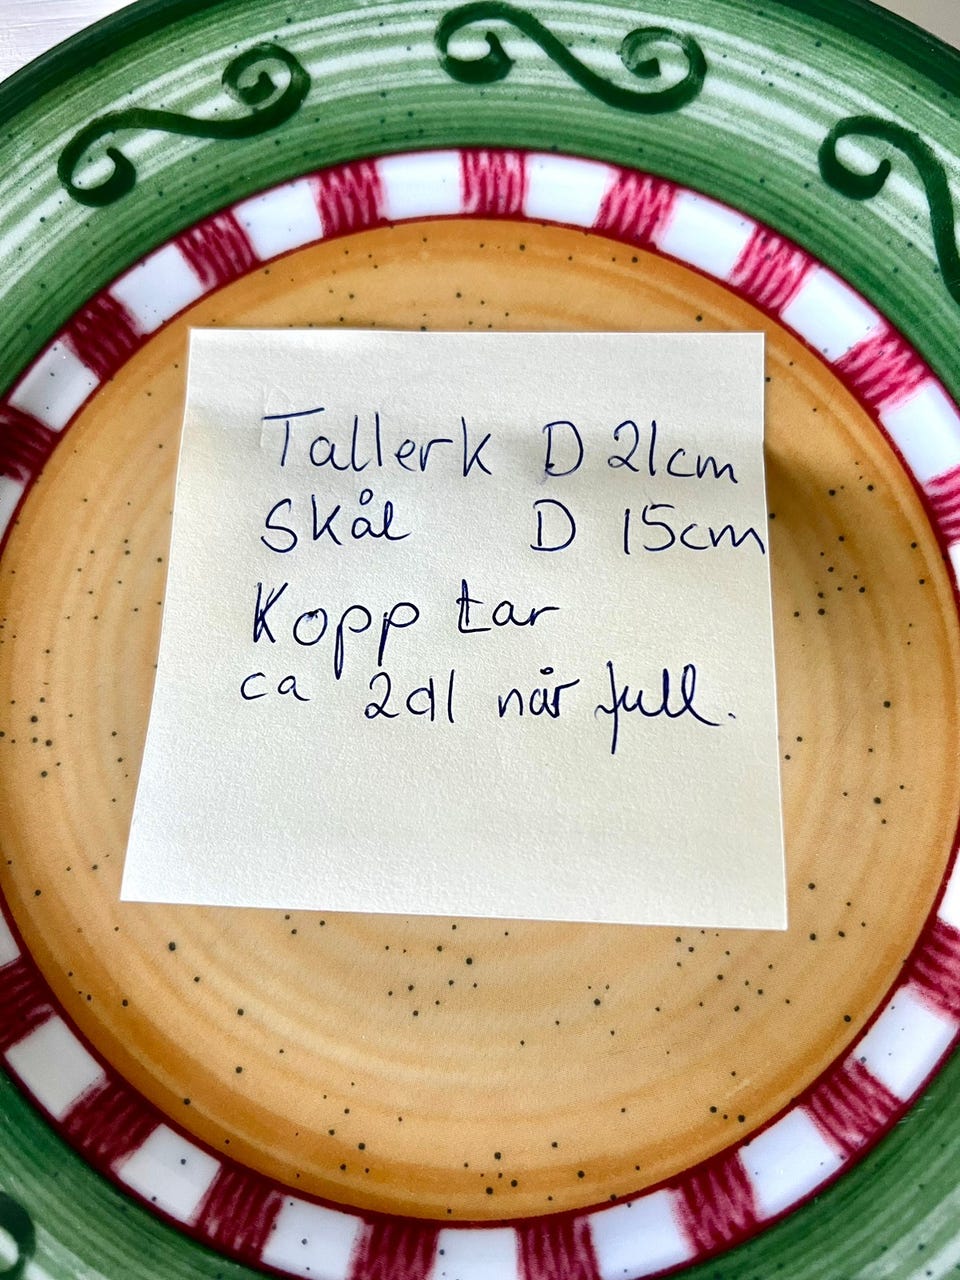 Tallerk D 21cm
Skål D 15cm
Kopp tar
ca 2dl når full.